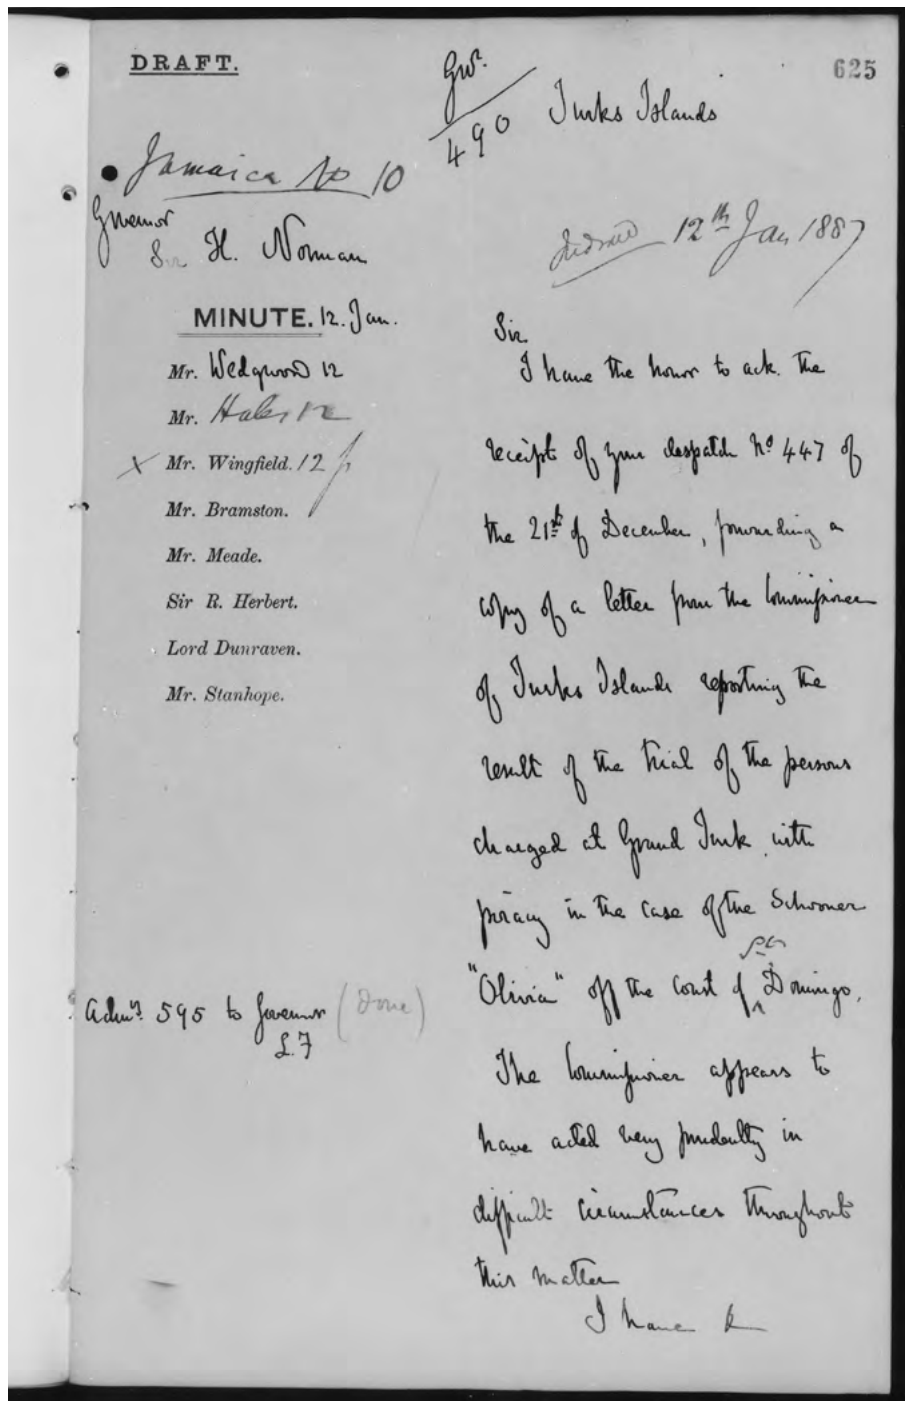 DRAFT.
Govr.
490
Turks Islands
625
Jamaica No 10
Governor
Sir H. Norman
12th Jan 1887
MINUTE. 12. Jan.
Mr. Wedgwood 12
Mr.
Mr. Wingfield. 12
Mr. Bramston.
Mr. Meade.
Sir R. Herbert.
Lord Dunraven.
Mr. Stanhope.
Sir
I have the honor to ack. the
receipt of your despatch No. 447 of
the 21st of December, forwarding a
copy of a letter from the Commissioner
of Turks Islands reporting the
result of the trial of the persons
charged at Grand Turk with
piracy in the case of the Schooner
"Olivia" off the coast of St. Domingo.
The Commissioner appears to
have acted very prudently in
difficult circumstances throughout
this matter
I have &
595 to Governor (done)
L.F